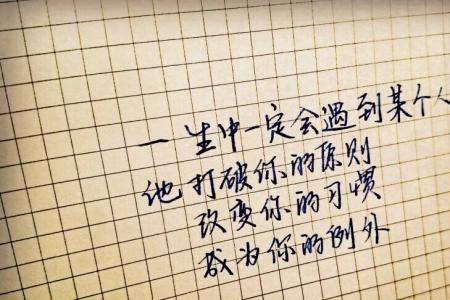 一生中一定会遇到某个人
他打破你的原则
改变你的习惯
成为你的例外